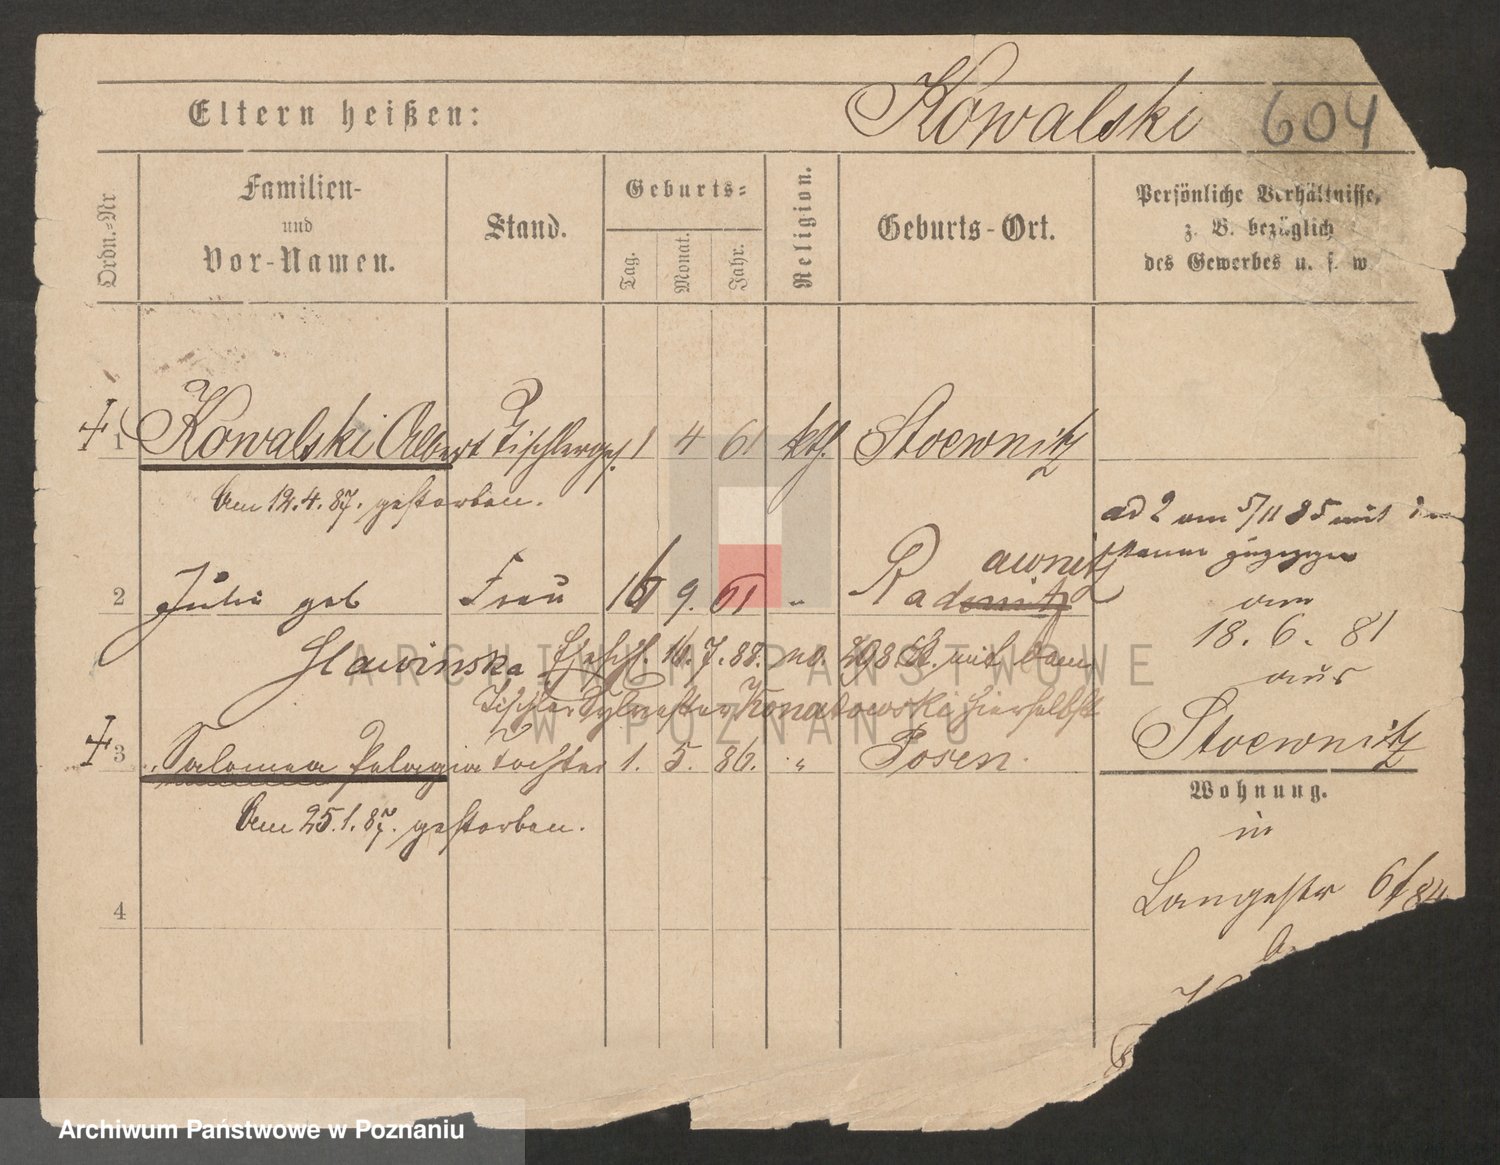 Eltern heißen:
Kowalski 604
Ordn.-Nr
Familien-
und
Vor-Namen.
Stand.
Geburts-
Tag.
Monat.
Jahr.
Religion.
Geburts-Ort.
Persönliche Verhältnisse,
z. B. bezüglich
des Gewerbes u. s. w
1 Kowalski Albert Tischlerges. 1 4 61 kth. Stoewnitz
Am 12.4.87. gestorben.
ad 2 am 5/11 85 mit
2 Julie geb Frau 16 9. 61 " Radomitz
awnitz
Slawinska Eheschl. 16.7.88. no. 298 St. mit dem
Tischler Sylvester Konatowski hierselbst
3 Salomea Pelagia Tochter 1. 5. 86. " Posen.
Am 25.1.87. gestorben.
4
am
18. 6. 81
aus
Stoewnitz
Wohnung.
in
Langestr 6/84
ARCHIWUM PAŃSTWOWE
W POZNANIU
Archiwum Państwowe w Poznaniu